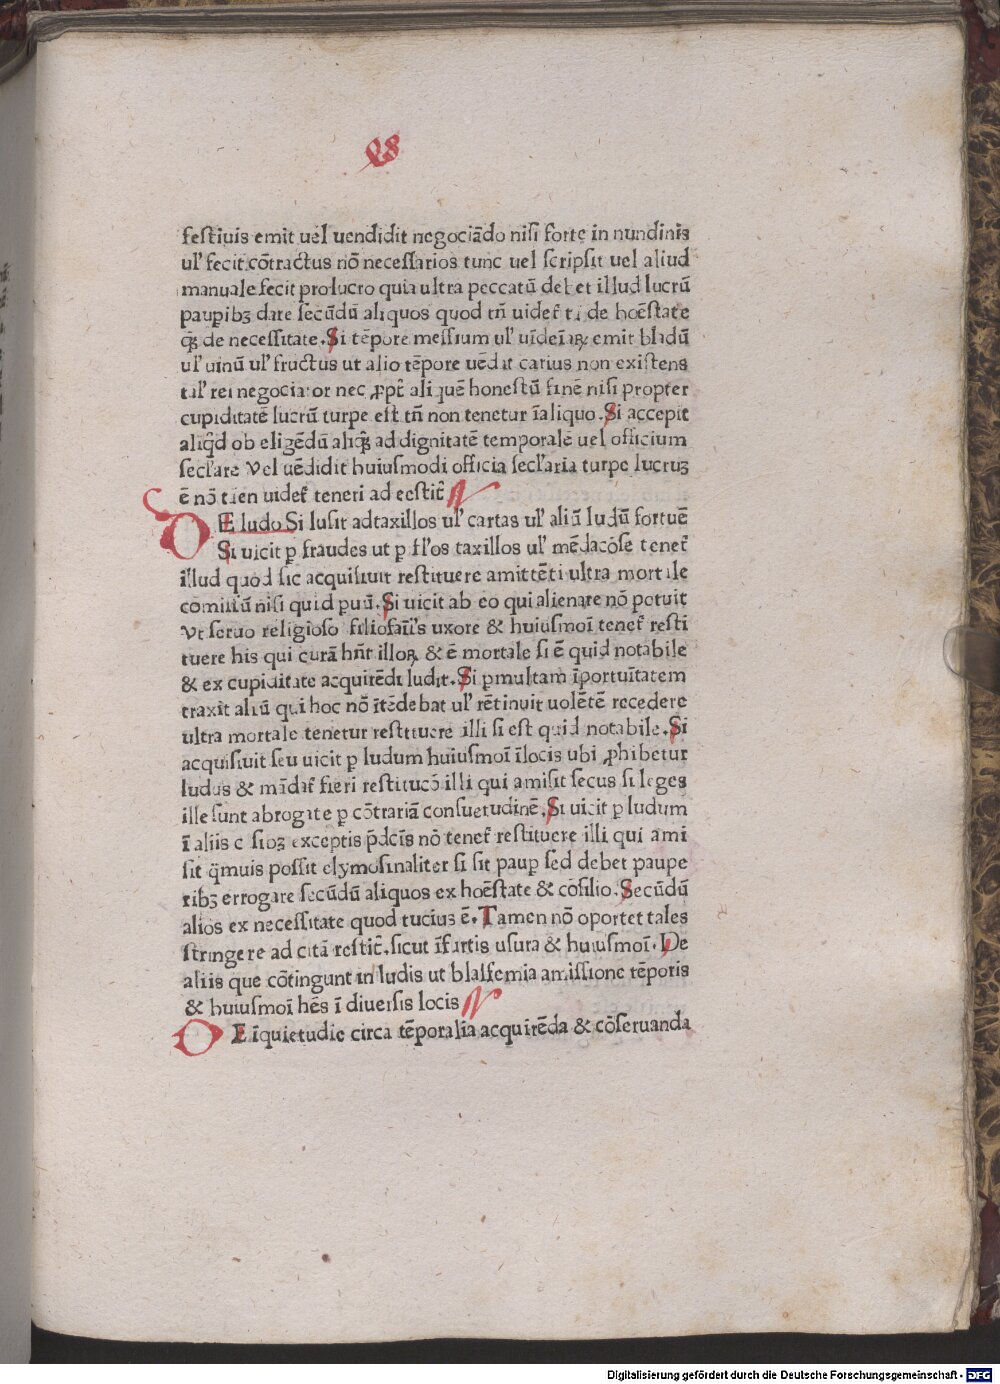 28
festiuis emit uel uendidit negociādo nisi forte in nundinis
ul' fecit cōtractus nō necessarios tunc uel scripsit uel aliud
manuale fecit pro lucro quia ultra peccatū debet illud lucrū
paupibꝫ dare secūdū aliquos quod tñ uidet̄ de hoēstate
ꝙ̄ de necessitate. Si tēpore messium ul' uīdeīaꝝ emit bladū
ul' uinū ul' fructus ut alio tēpore uēdat carius non existens
tal' rei negociator nec ꝓpt̄ aliquē honestū finē nisi propter
cupiditatē lucrū turpe est tñ non tenetur ī aliquo. Si accepit
aliq̄d ob eligēdū aliq̄ꝫ ad dignitatē temporalē uel officium
secl'are Vel uēdidit huiusmodi officia secl'aria turpe lucruꝫ
ē nō tñ uidet̄ teneri ad restit̄
DE ludo Si lusit ad taxillos ul' cartas ul' aliū ludū fortuē
Si uicit ꝑ fraudes ut ꝑ fl'os taxillos ul' mēdacōse tenet̄
illud quod sic acquisiuit restituere amittēti ultra mortale
comissū nisi quid puū. Si uicit ab eo qui alienare nō potuit
Vt seruo religioso filiofaīl's uxore & huiusmoī tenet̄ resti
tuere his qui curā hn̄t illoꝝ & ē mortale si ē quid notabile
& ex cupiditate acquirēdi ludit. Si ꝑ multam īportuītatem
traxit aliū qui hoc nō ītēdebat ul' rētinuit uolētē recedere
ultra mortale tenetur restituere illi si est quid notabile. Si
acquisiuit seu uicit ꝑ ludum huiusmoī ī locis ubi ꝓhibetur
ludus & mādat̄ fieri restitucō illi qui amisit secus si leges
ille sunt abrogate ꝑ cōtrariā consuetudinē. Si uicit ꝑ ludum
ī aliis casibꝫ exceptis p̄dcīs nō tenet̄ restituere illi qui ami
sit q̄muis possit elymosinaliter si sit paup sed debet paupe
ribꝫ errogare secūdū aliquos ex hoēstate & cōsilio. Secūdū
alios ex necessitate quod tucius ē. Tamen nō oportet tales
stringere ad citā restit̄. sicut ī furtis usura & huiusmoī. De
aliis que cōtingunt in ludis ut blasfemia amissione tēporis
& huiusmoī hēs ī diuersis locis
DE īquietudie circa tēporalia acquirēda & cōseruanda
Digitalisierung gefördert durch die Deutsche Forschungsgemeinschaft - DFG